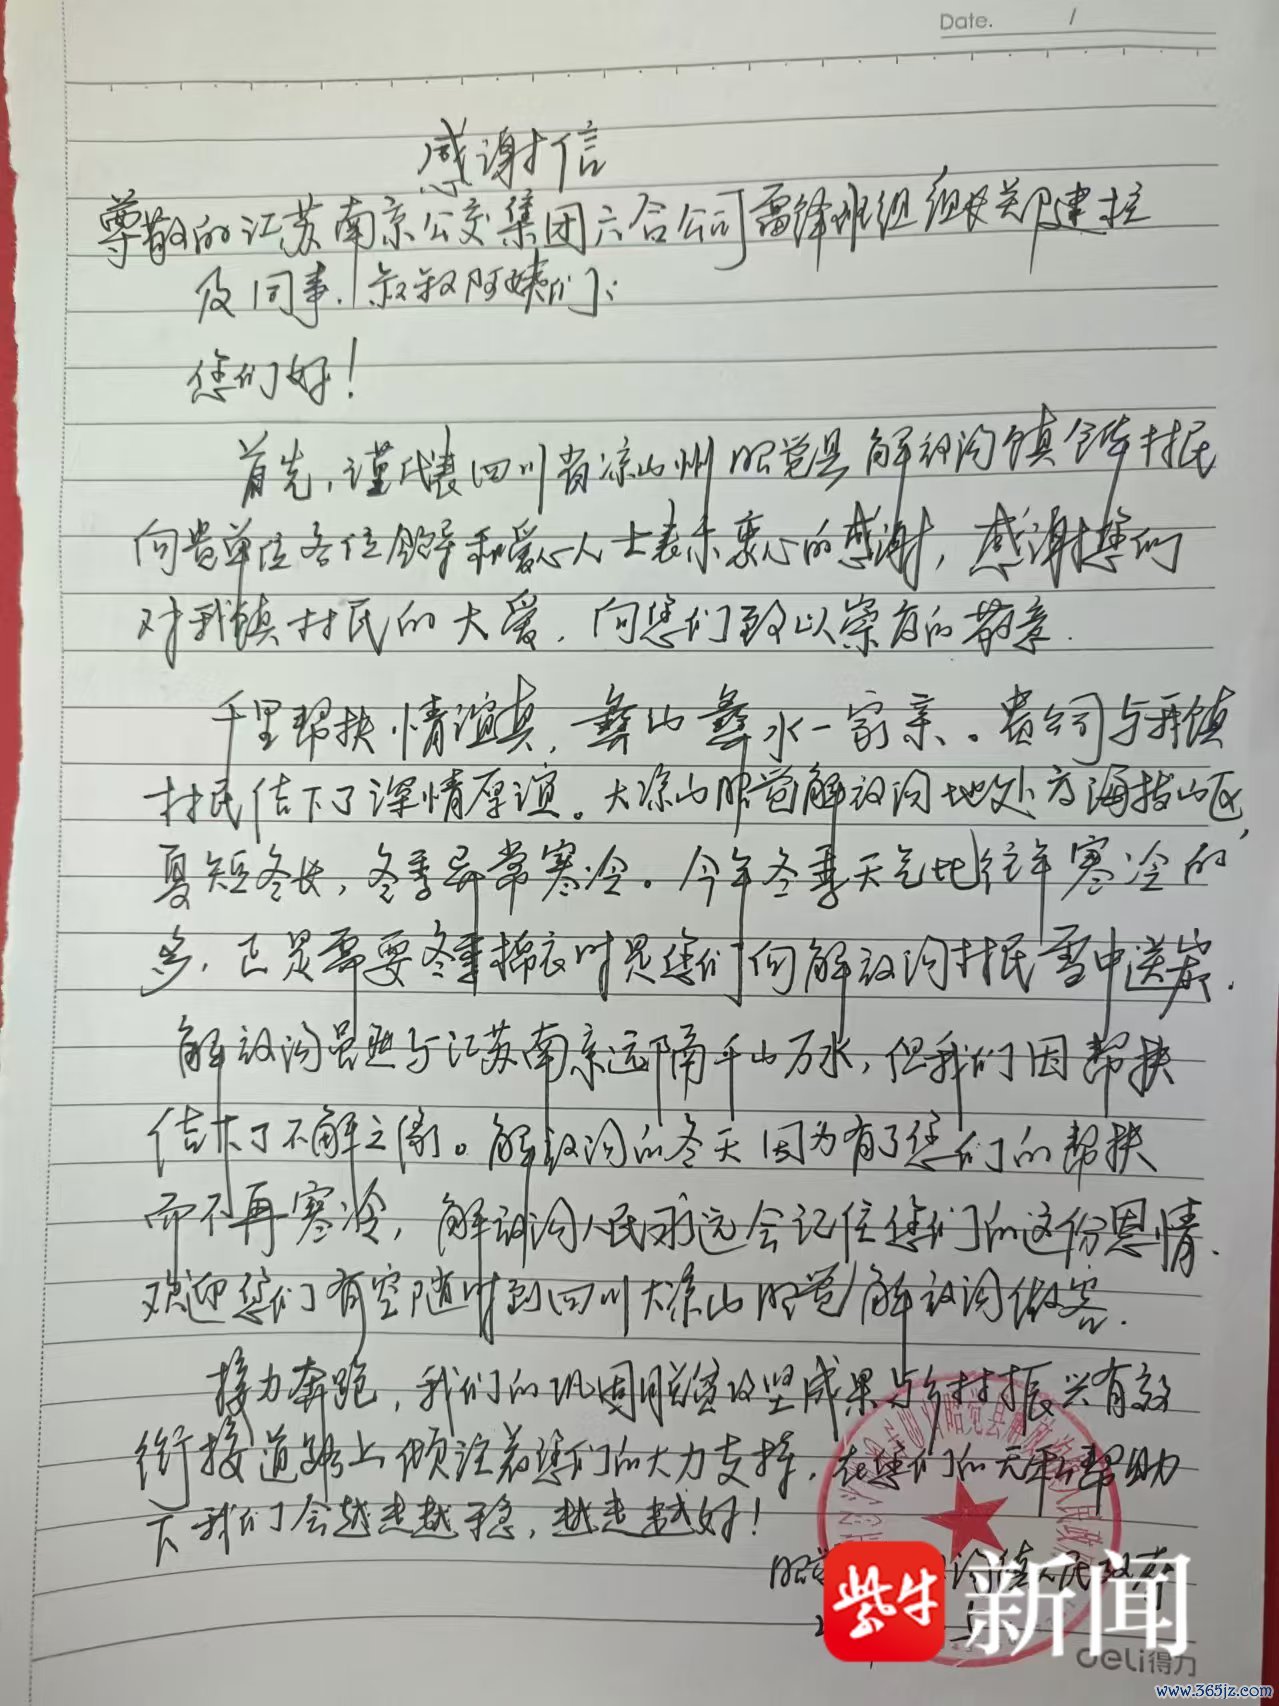 Date. /
感谢信
尊敬的江苏南京公交集团六合公司雷锋班组组长郑建拉
及同事、叔叔阿姨们:
您们好!
首先,谨代表四川省凉山州昭觉县解放沟镇全体村民
向贵单位各位领导和爱心人士表示衷心的感谢,感谢您们
对我镇村民的大爱,向您们致以崇高的敬意.
千里帮扶情谊真,彝山彝水一家亲。贵公司与我镇
村民结下了深情厚谊。大凉山昭觉解放沟地处高海拔山区,
夏短冬长,冬季异常寒冷。今年冬季天气比往年寒冷的
多,正是需要冬季棉衣时是您们向解放沟村民雪中送炭.
解放沟虽然与江苏南京远隔千山万水,但我们因帮扶
结下了不解之缘。解放沟的冬天因为有了您们的帮扶
而不再寒冷,解放沟人民永远会记住您们的这份恩情.
欢迎您们有空随时到四川大凉山昭觉解放沟做客.
接力奔跑,我们的巩固脱贫攻坚成果与乡村振兴有效
衔接道路上倾注着您们的大力支持,在您们的无私帮助
下我们会越走越稳,越走越好!
昭觉 沟镇人民政府
昭觉县解放沟镇人民政府
紫牛新闻
deli得力
www.365jz.com